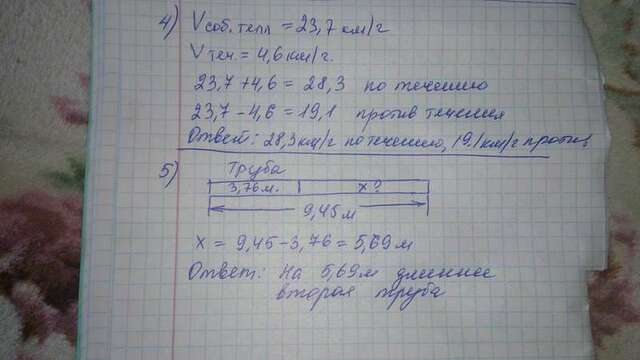 4) Vсоб. тепл = 23,7 км/г
Vтеч. = 4,6 км/г.
23,7 + 4,6 = 28,3 по течению
23,7 - 4,6 = 19,1 против течения
Ответ: 28,3 км/г по течению, 19,1 км/г против
5) Труба
3,76 м. х?
9,45 м
х = 9,45 - 3,76 = 5,69 м
Ответ: На 5,69 м длиннее
вторая труба